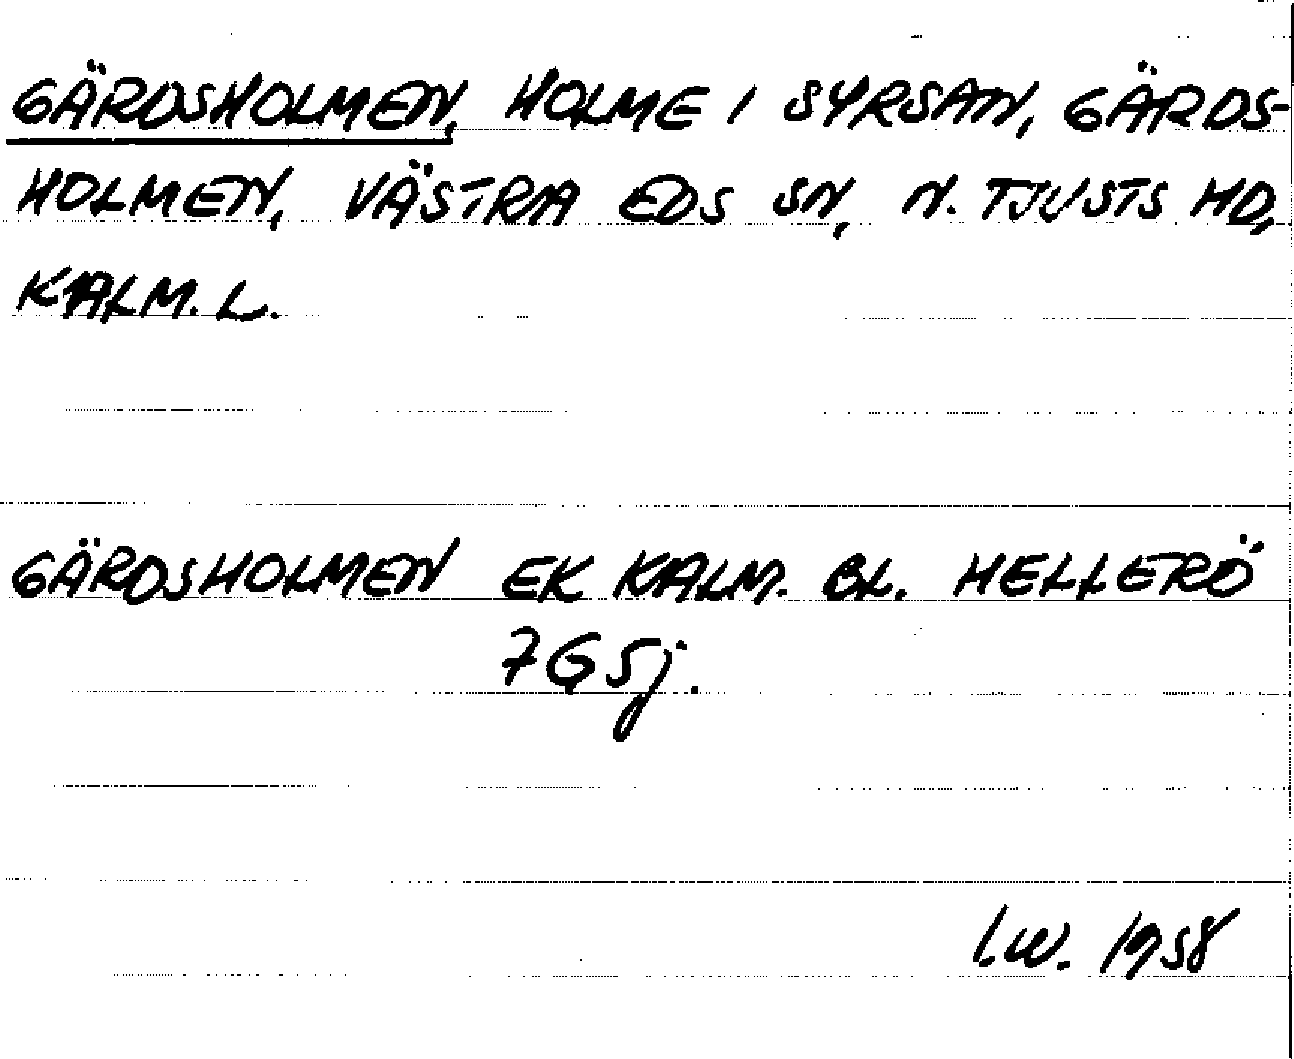 GÄRDSHOLMEN, HOLME I SYRSAN, GÄRDS-
HOLMEN, VÄSTRA EDS SN, N. TJUSTS HD,
KALM. L.
GÄRDSHOLMEN EK KALM. BL. HELLERÖ
7G5j.
I.W. 1958